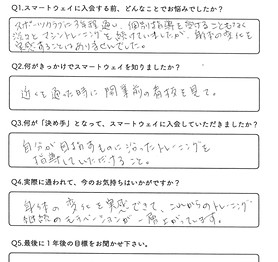 Q1.スマートウェイに入会する前、どんなことでお悩みでしたか？
スポーツクラブに3年程通い、個別指導を受けることもなく
淡々とマシントレーニングを続けていましたが、身体の変化を
実感することはありませんでした。
Q2.何がきっかけでスマートウェイを知りましたか？
近くを通った時に開業前の看板を見て。
Q3.何が「決め手」となって、スマートウェイに入会していただきましたか？
自分が目指すものに沿ったトレーニングを
指導していただけること。
Q4.実際に通われて、今のお気持ちはいかがですか？
身体の変化を実感できて、これからのトレーニング
継続のモチベーションが一層上がっています。
Q5.最後に1年後の目標をお聞かせ下さい。